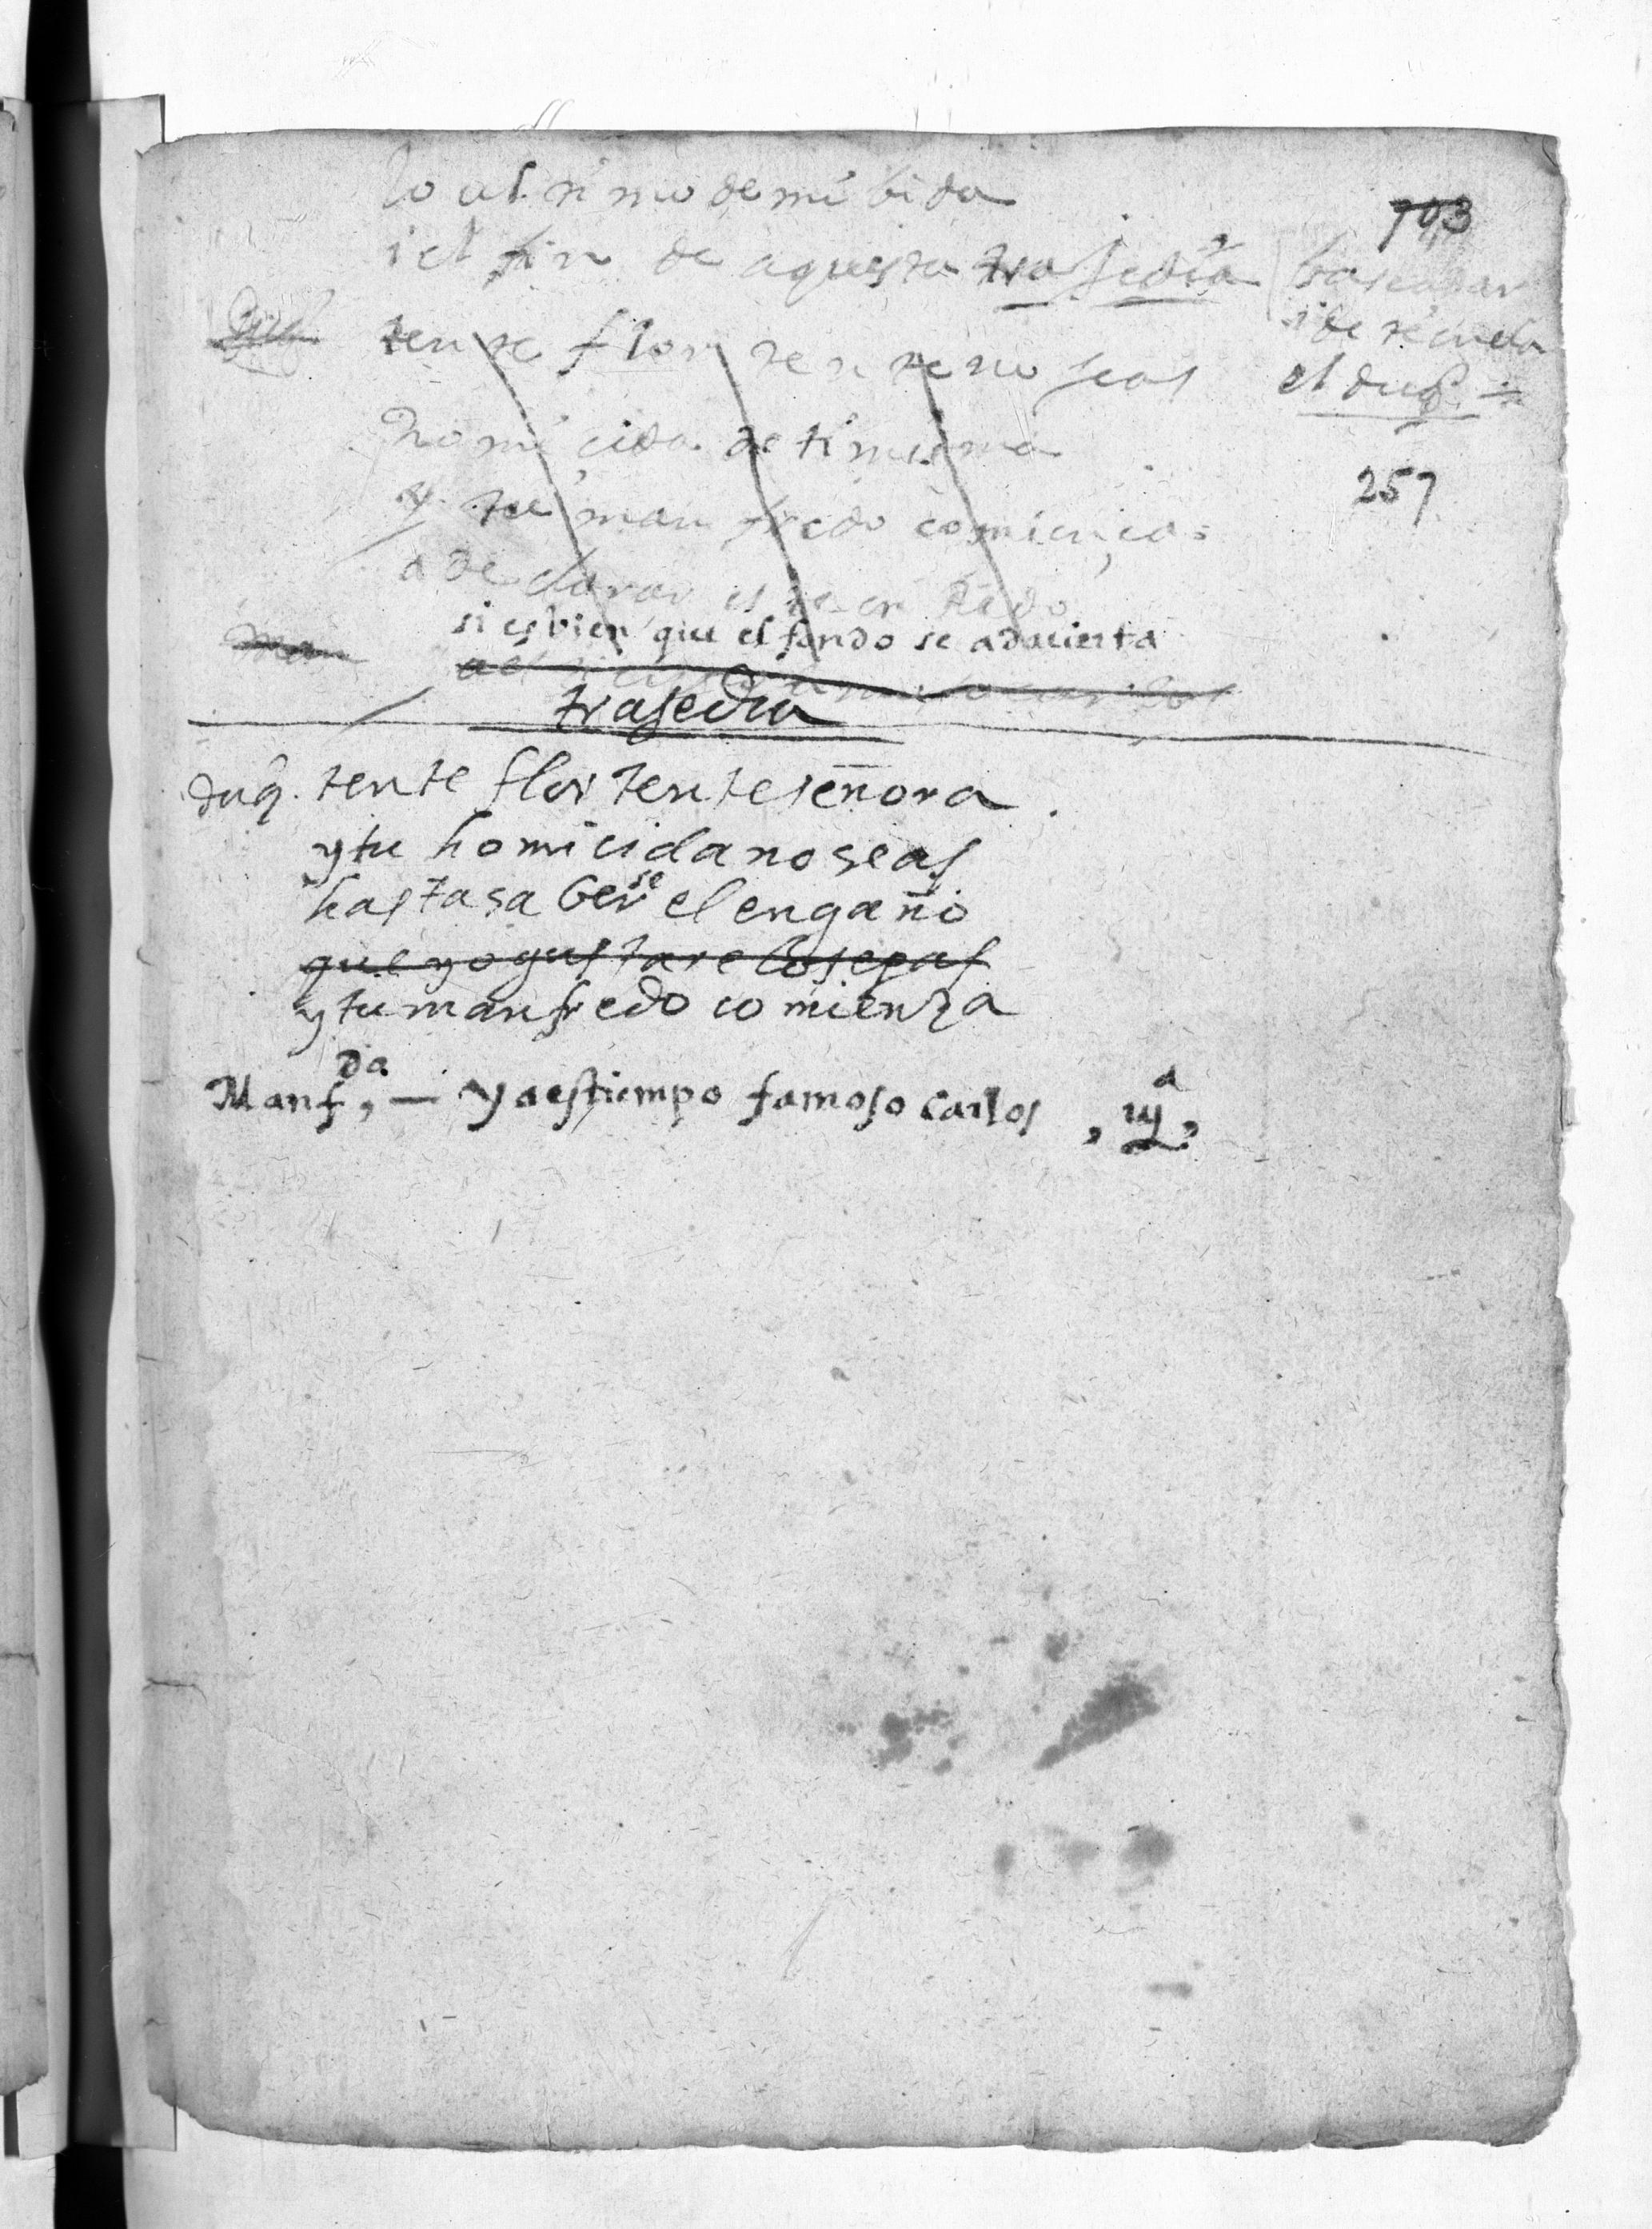 lo ultimo de mi bida
703
i el fin de aquesta trasedia
base a dar
i de tienela
el duq̃
duq̃ tente flor tente no seas
homicida de ti misma
257
y tu manfredo comiença
a declarar este enrredo
si es bien que el fondo se adauierta
man
trasedia
duq̃. tente flor tente señora
y tu homicida no seas
hasta saberse el engaño
que yo gustare lo sepas
y tu manfredo comienza
Manfda, — ya es tiempo famoso carlos , iija,